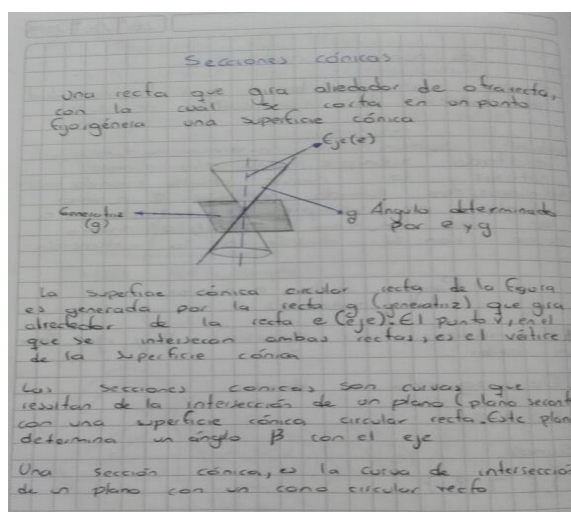 Secciones cónicas
Una recta que gira alrededor de otra recta,
con la cuál se corta en un punto
fijo, génera una superficie cónica
Eje(e)
Generatriz
(g)
g Ángulo determinado
por e y g
La superficie cónica circular recta de la figura
es generada por la recta g (generatriz) que gira
alrededor de la recta e (eje). El punto v, en el
que se intersecan ambas rectas, es el vértice
de la superficie cónica
Las secciones cónicas son curvas que
resultan de la intersección de un plano (plano secant
con una superficie cónica circular recta. Este plan
determina un ángulo β con el eje
Una sección cónica, es la curva de intersecció
de un plano con un cono circular recto